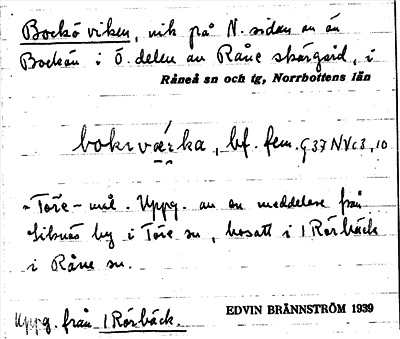 Bockö viken, vik på N. sidan av ön
Bockön i Ö. delen av Råne skärgård, i
Råneå sn och tg, Norrbottens län
bokrværka, bf. fem. G 37 NV c 3, 10
"Töre"-mål. Uppg. av en meddelare från
by i Töre sn, bosatt i 1 Rörbäck
i Råne sn.
Uppg. från 1 Rörbäck.
EDVIN BRÄNNSTRÖM 1939